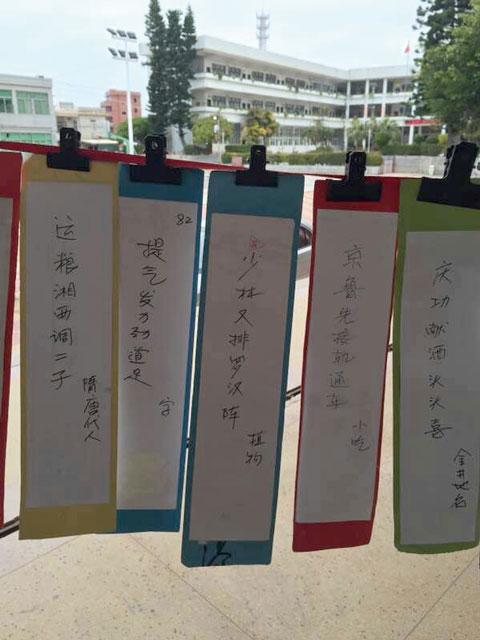 运粮湘西调二子
隋唐代人
82
提气发力劲道足
字
少林又排罗汉阵
植物
京鲁先接轨通车
小吃
庆功献酒沃沃喜
金井地名